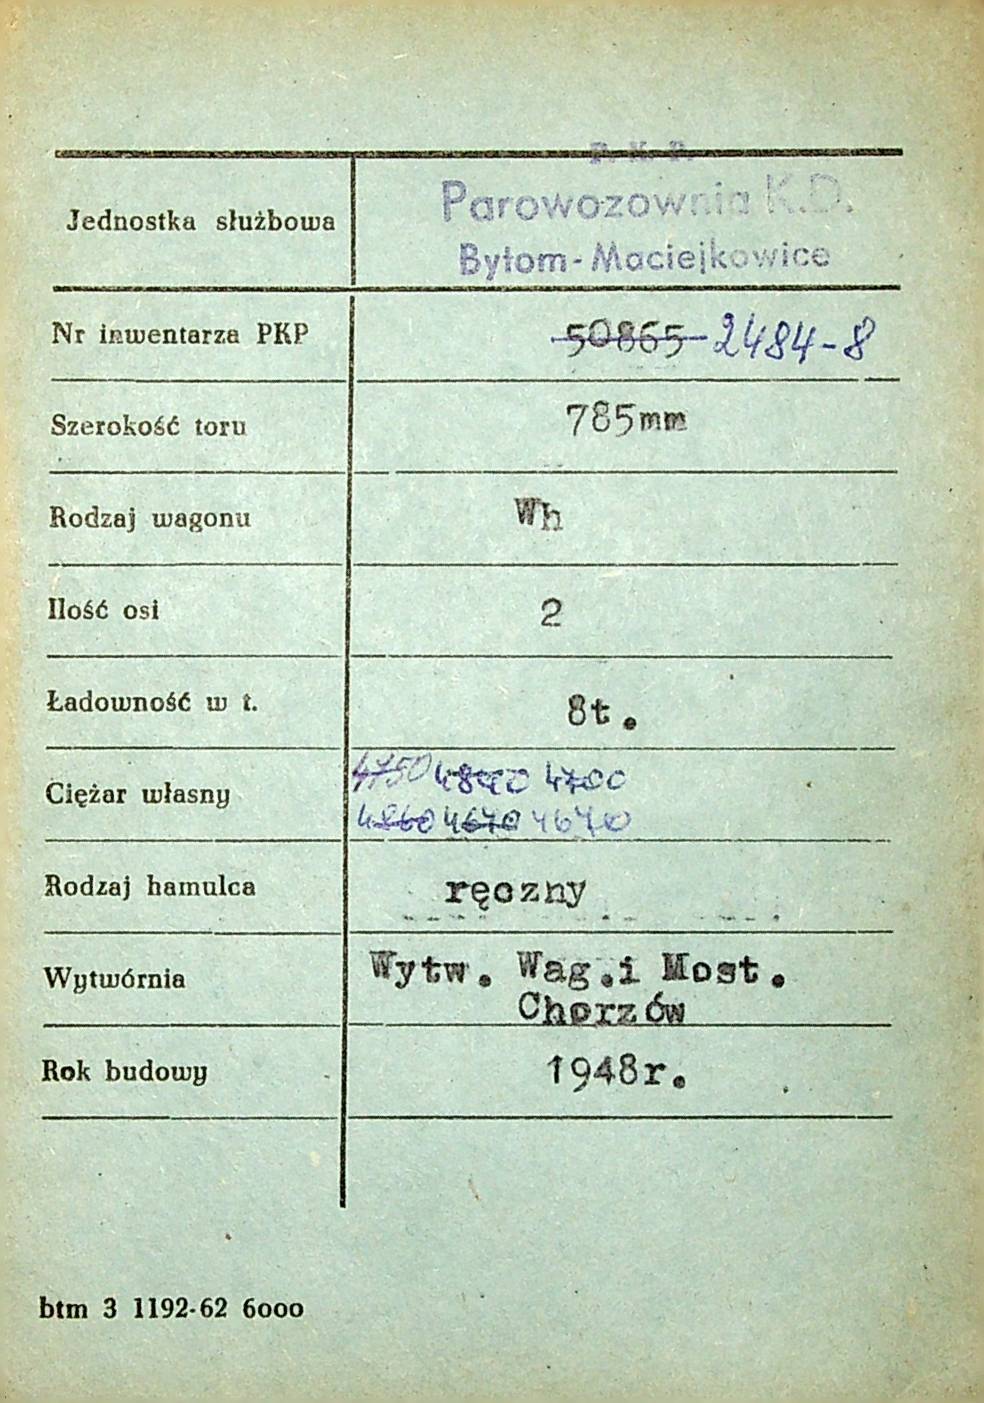 P. K. P.
Jednostka służbowa Parowozownia K.D.
Bytom-Maciejkowice
Nr inwentarza PKP 50865 2484-8
Szerokość toru 785mm
Rodzaj wagonu Wh
Ilość osi 2
Ładowność w t. 8t.
Ciężar własny 4750 4700
4860 4670 4670
Rodzaj hamulca ręczny
Wytwórnia Wytw. Wag.i Most.
Chorzów
Rok budowy 1948r.
btm 3 1192-62 6000